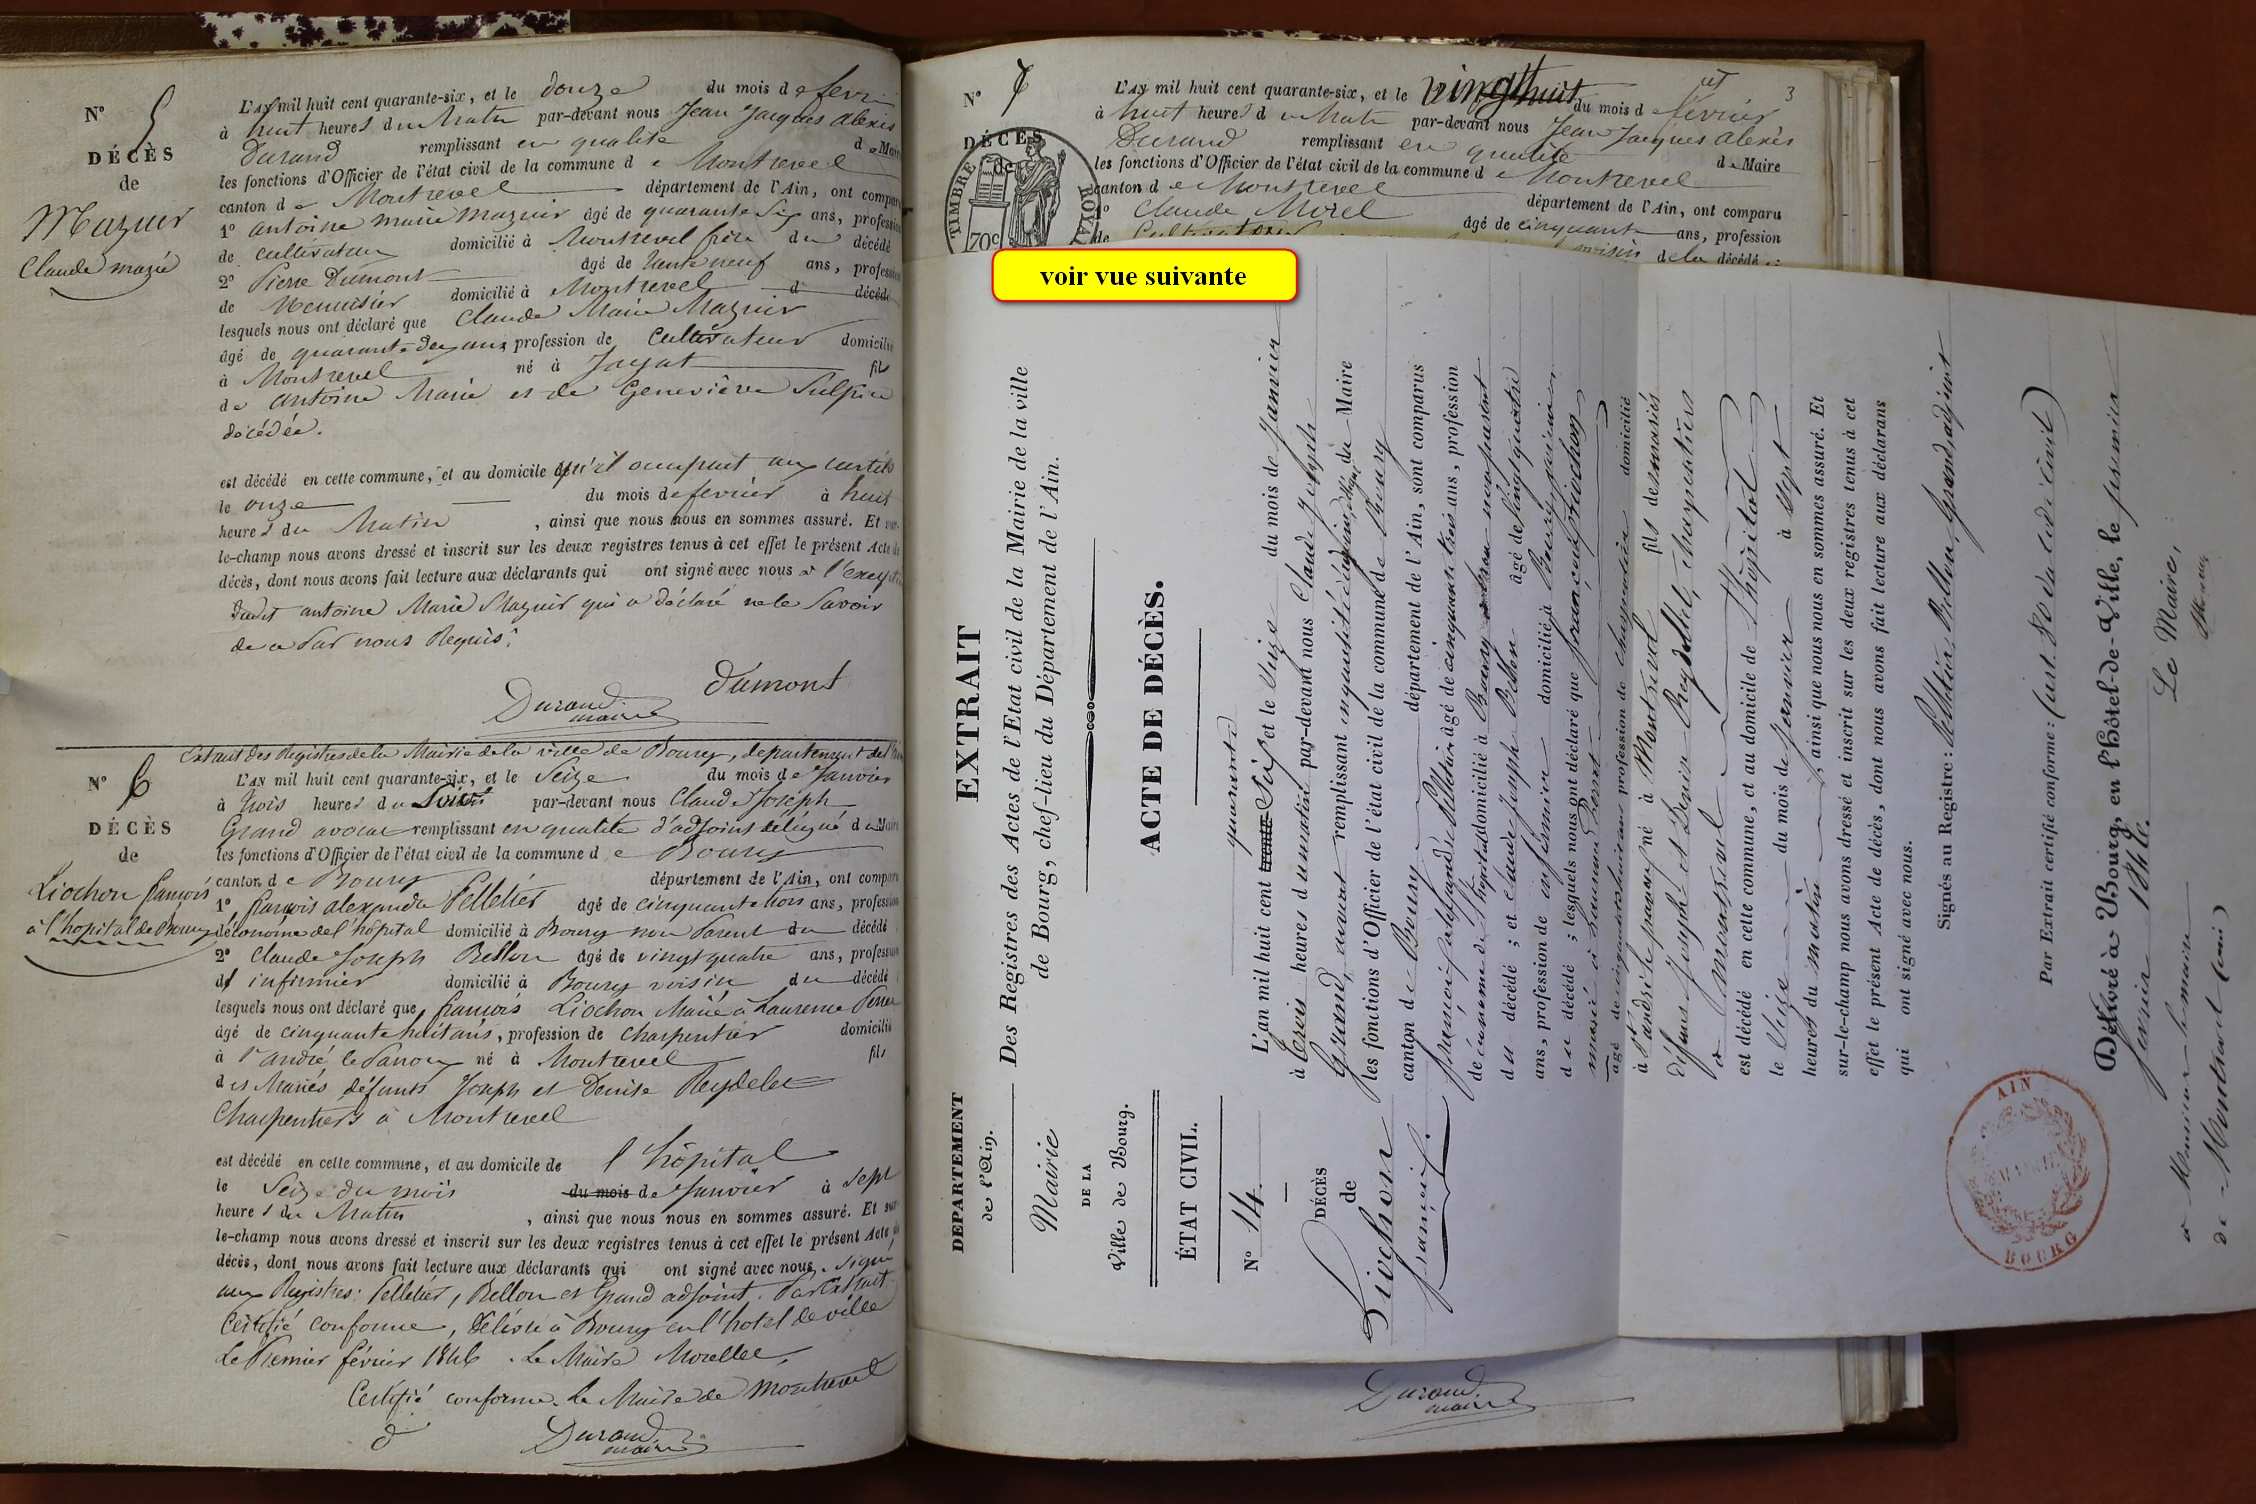 N° 5
DÉCÈS
de
Mazuir
Claude marie
L'AN mil huit cent quarante-six, et le douze du mois de fevrier
à huit heures du Matin par-devant nous Jean Jacques Alexis
Durand remplissant en qualité de Maire
les fonctions d'Officier de l'état civil de la commune de Montrevel
canton de Montrevel département de l'Ain, ont comparu
1° antoine marie Mazuir âgé de quarante six ans, profession
de cultivateur domicilié à Montrevel frère du décédé
2° Pierre Dumont âgé de trente neuf ans, profession
de Menuisier domicilié à Montrevel d décédé
lesquels nous ont déclaré que Claude Marie Mazuir
âgé de quarante deux ans profession de Cultivateur domicilié
à Montrevel né à Jayat fils
de antoine Marie et de Geneviève Sulpice
décédée.
est décédé en cette commune, et au domicile qu'il occupait aux
le onze du mois de fevrier à huit
heures du Matin, ainsi que nous nous en sommes assuré. Et sur-
le-champ nous avons dressé et inscrit sur les deux registres tenus à cet effet le présent Acte de
décès, dont nous avons fait lecture aux déclarants qui ont signé avec nous à l'exception
dudit antoine Marie Mazuir qui a déclaré ne le Savoir
de ce Par nous Requis.
Dumont
Durand
maire
Extrait des Registres de la Mairie de la ville de Bourg, département de l'Ain
N° 6
DÉCÈS
de
Liochon françois
à l'hopital de Bourg
L'AN mil huit cent quarante-six, et le Seize du mois de Janvier
à trois heures du Soir par-devant nous Claude Joseph
Grand avocat remplissant en qualité d'adjoint délégué du Maire
les fonctions d'Officier de l'état civil de la commune de Bourg
canton de Bourg département de l'Ain, ont comparu
1° françois alexandre Pelletier âgé de cinquante trois ans, profession
d'économe de l'hôpital domicilié à Bourg non Parent du décédé
2° Claude Joseph Bellon âgé de vingt quatre ans, profession
d' infirmier domicilié à Bourg voisin du décédé
lesquels nous ont déclaré que françois Liochon Marié à Laurence Perret
âgé de cinquante huit ans, profession de Charpentier domicilié
à St andré le Panoux né à Montrevel fils
des Mariés défunts Joseph et Denise Reydellet
Charpentiers à Montrevel
est décédé en cette commune, et au domicile de l'hôpital
le Seize du mois du mois de Janvier à sept
heures du Matin, ainsi que nous nous en sommes assuré. Et sur-
le-champ nous avons dressé et inscrit sur les deux registres tenus à cet effet le présent Acte de
décès, dont nous avons fait lecture aux déclarants qui ont signé avec nous. Signé
aux Registres: Pelletier, Bellon et Grand adjoint. Par Extrait
Certifié conforme, délivré à Bourg en l'hotel de ville
Le Premier février 1846. Le Maire Morellet,
Certifié conforme. Le Maire de Montrevel
Durand
maire
3
N° 7
DÉCÈS
de
TIMBRE ROYAL
70c
L'AN mil huit cent quarante-six, et le vingt huit du mois de février
à huit heures du Matin par-devant nous Jean Jacques Alexis
Durand remplissant en qualité de Maire
les fonctions d'Officier de l'état civil de la commune de Montrevel
canton de Montrevel département de l'Ain, ont comparu
1° Claude Morel âgé de cinquante ans, profession
de Cultivateur voisin de la décédé
voir vue suivante
DÉPARTEMENT
de l'Ain.
Mairie
DE LA
Ville de Bourg.
ÉTAT CIVIL.
N° 14.
DÉCÈS
de
Liochon
françois.
EXTRAIT
Des Registres des Actes de l'Etat civil de la Mairie de la ville
de Bourg, chef-lieu du Département de l'Ain.
ACTE DE DÉCÈS.
quarante
L'an mil huit cent trente Six et le Seize du mois de Janvier
à trois heures du matin par-devant nous Claude Joseph
Grand, avocat remplissant en qualité d'adjoint du Maire
les fonctions d'Officier de l'état civil de la commune de Bourg
canton de Bourg département de l'Ain, sont comparus
françois alexandre Pelletier âgé de cinquante trois ans, profession
de économe de l'hopital domicilié à Bourg non parent
du décédé ; et Claude Joseph Bellon âgé de vingt quatre
ans, profession de infirmier domicilié à Bourg voisin
du décédé ; lesquels nous ont déclaré que françois Liochon
marié à Laurence Perret
âgé de cinquante huit ans profession de charpentier domicilié
à St andré le panoux né à Montrevel fils de mariés
défunts Joseph et Denise Reydellet, charpentiers
à Montrevel
est décédé en cette commune, et au domicile de l'hôpital
le Seize du mois de Janvier à sept
heures du matin, ainsi que nous nous en sommes assuré. Et
sur-le-champ nous avons dressé et inscrit sur les deux registres tenus à cet
effet le présent Acte de décès, dont nous avons fait lecture aux déclarans
qui ont signé avec nous.
Signés au Registre : Pelletier, Bellon, Grand adjoint
Par Extrait certifié conforme : (art. 80 du code civil)
Délivré à Bourg, en l'hôtel-de-Ville, le premier
février 1846.
Le Maire,
à Monsieur le maire
de Montrevel (ain)
AIN
MAIRIE
BOURG
Durand
maire